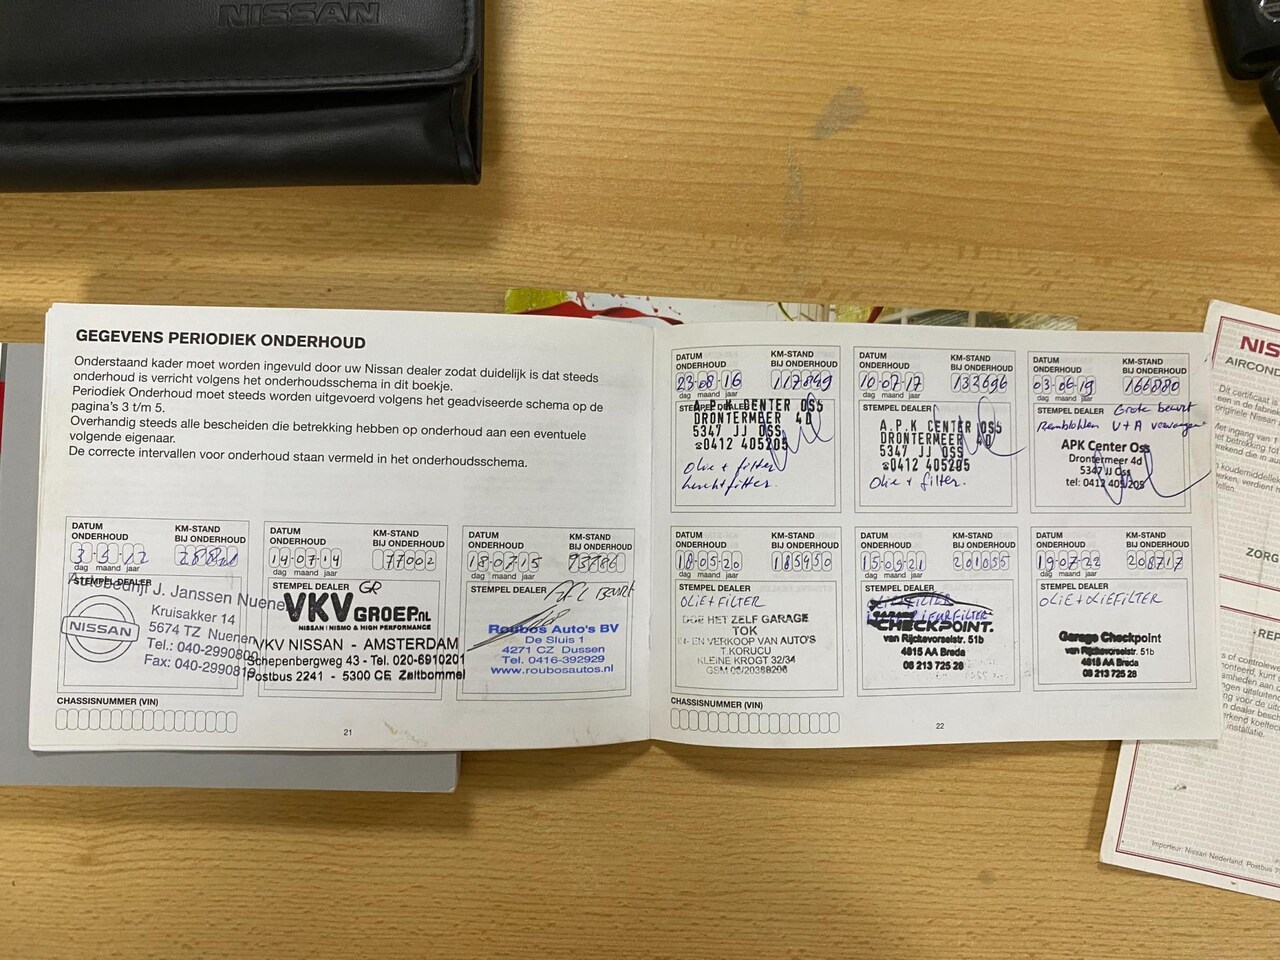 NISSAN
GEGEVENS PERIODIEK ONDERHOUD
Onderstaand kader moet worden ingevuld door uw Nissan dealer zodat duidelijk is dat steeds
onderhoud is verricht volgens het onderhoudsschema in dit boekje.
Periodiek Onderhoud moet steeds worden uitgevoerd volgens het geadviseerde schema op de
pagina's 3 t/m 5.
Overhandig steeds alle bescheiden die betrekking hebben op onderhoud aan een eventuele
volgende eigenaar.
De correcte intervallen voor onderhoud staan vermeld in het onderhoudsschema.
DATUM ONDERHOUD
KM-STAND BIJ ONDERHOUD
3-5-12
dag maand jaar
STEMPEL DEALER
Autobedrijf J. Janssen Nuenen
Kruisakker 14
5674 TZ Nuenen
Tel.: 040-2990800
Fax: 040-2990810
NISSAN
DATUM ONDERHOUD
KM-STAND BIJ ONDERHOUD
14-07-14 77002
dag maand jaar
STEMPEL DEALER GR
VKV GROEP.nl
NISSAN / NISMO & HIGH PERFORMANCE
VKV NISSAN - AMSTERDAM
Schepenbergweg 43 - Tel. 020-6910201
Postbus 2241 - 5300 CE Zaltbommel
DATUM ONDERHOUD
KM-STAND BIJ ONDERHOUD
18-07-15 93786
dag maand jaar
STEMPEL DEALER
BEURT
Roubos Auto's BV
De Sluis 1
4271 CZ Dussen
Tel. 0416-392929
www.roubosautos.nl
CHASSISNUMMER (VIN)
21
DATUM ONDERHOUD
KM-STAND BIJ ONDERHOUD
23-08-16 117849
dag maand jaar
STEMPEL DEALER
A.P.K CENTER OSS
DRONTERMEER 4D
5347 JJ OSS
☎0412 405205
Olie + filter
luchtfilter.
DATUM ONDERHOUD
KM-STAND BIJ ONDERHOUD
10-07-17 133696
dag maand jaar
STEMPEL DEALER
A.P.K CENTER OSS
DRONTERMEER 4D
5347 JJ OSS
☎0412 405205
Olie + filter.
DATUM ONDERHOUD
KM-STAND BIJ ONDERHOUD
03-06-19 166880
dag maand jaar
STEMPEL DEALER Grote beurt
Remblokken V+A vervangen
APK Center Oss
Drontermeer 4d
5347 JJ Oss
tel: 0412 405205
DATUM ONDERHOUD
KM-STAND BIJ ONDERHOUD
18-05-20 185950
dag maand jaar
STEMPEL DEALER
OLIE+FILTER
DOE HET ZELF GARAGE
TOK
IN- EN VERKOOP VAN AUTO'S
T.KORUCU
KLEINE KROGT 32/34
GSM 06/20388206
DATUM ONDERHOUD
KM-STAND BIJ ONDERHOUD
15-09-21 201055
dag maand jaar
STEMPEL DEALER
CHECKPOINT.
van Rijckevorselstr. 51b
4815 AA Breda
06 213 725 28
DATUM ONDERHOUD
KM-STAND BIJ ONDERHOUD
19-07-22 208717
dag maand jaar
STEMPEL DEALER
OLIE+OLIEFILTER
Garage Checkpoint
van Rijckevorselstr. 51b
4815 AA Breda
06 213 725 28
CHASSISNUMMER (VIN)
22
NIS
AIRCOND
Dit certificaat is
ZORG
REP
Importeur: Nissan Nederland, Postbus